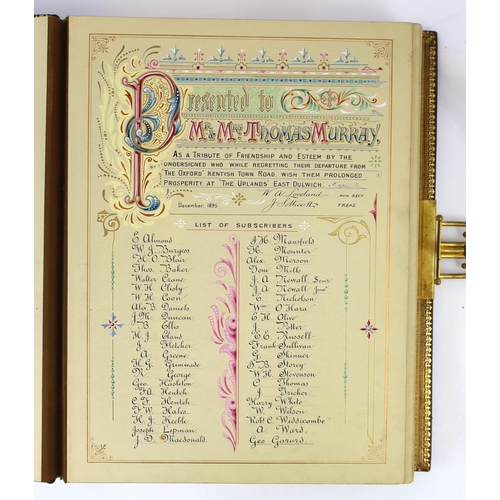 Presented to
Mr & Mrs Thomas Murray,
As a Tribute of Friendship and Esteem by the
undersigned who while regretting their departure from
The Oxford' Kentish Town Road, wish them prolonged
Prosperity at 'The Uplands' East Dulwich.
W. A. Loveland Hon Secy.
December, 1895 Treas.
List of Subscribers
E Almond
W. J. Burgess
H. O. Blair
Thos. Baker
Walter Crane
W. H. Cloby
W. H. Coon
Alex B. Daniels
J. M. Duncan
B. Ellis
H. J. Eland
J. Fletcher
A Greene
H G Grimwade
R. George
Geo. Hasleton
F A Hentch
C. F. Hentch
F. W. Hales
H. J. Keeble
Joseph Lipman
J. D. Macdonald
J. H. Mansfield
Mounter
Alex Merson
Tom Mills
J. A Newall Senr
J. A Newall Junr
E. Nicholson
Wm O'Hara
E H Olive
J. Potter
E G Russell
Frank Sullivan
G. Skinner
S B. Storey
W H. Stevenson
C Thomas
J Tricker
Harry White
W. J. Wilson
Robt C. Widdicombe
A Ward.
Geo Garord